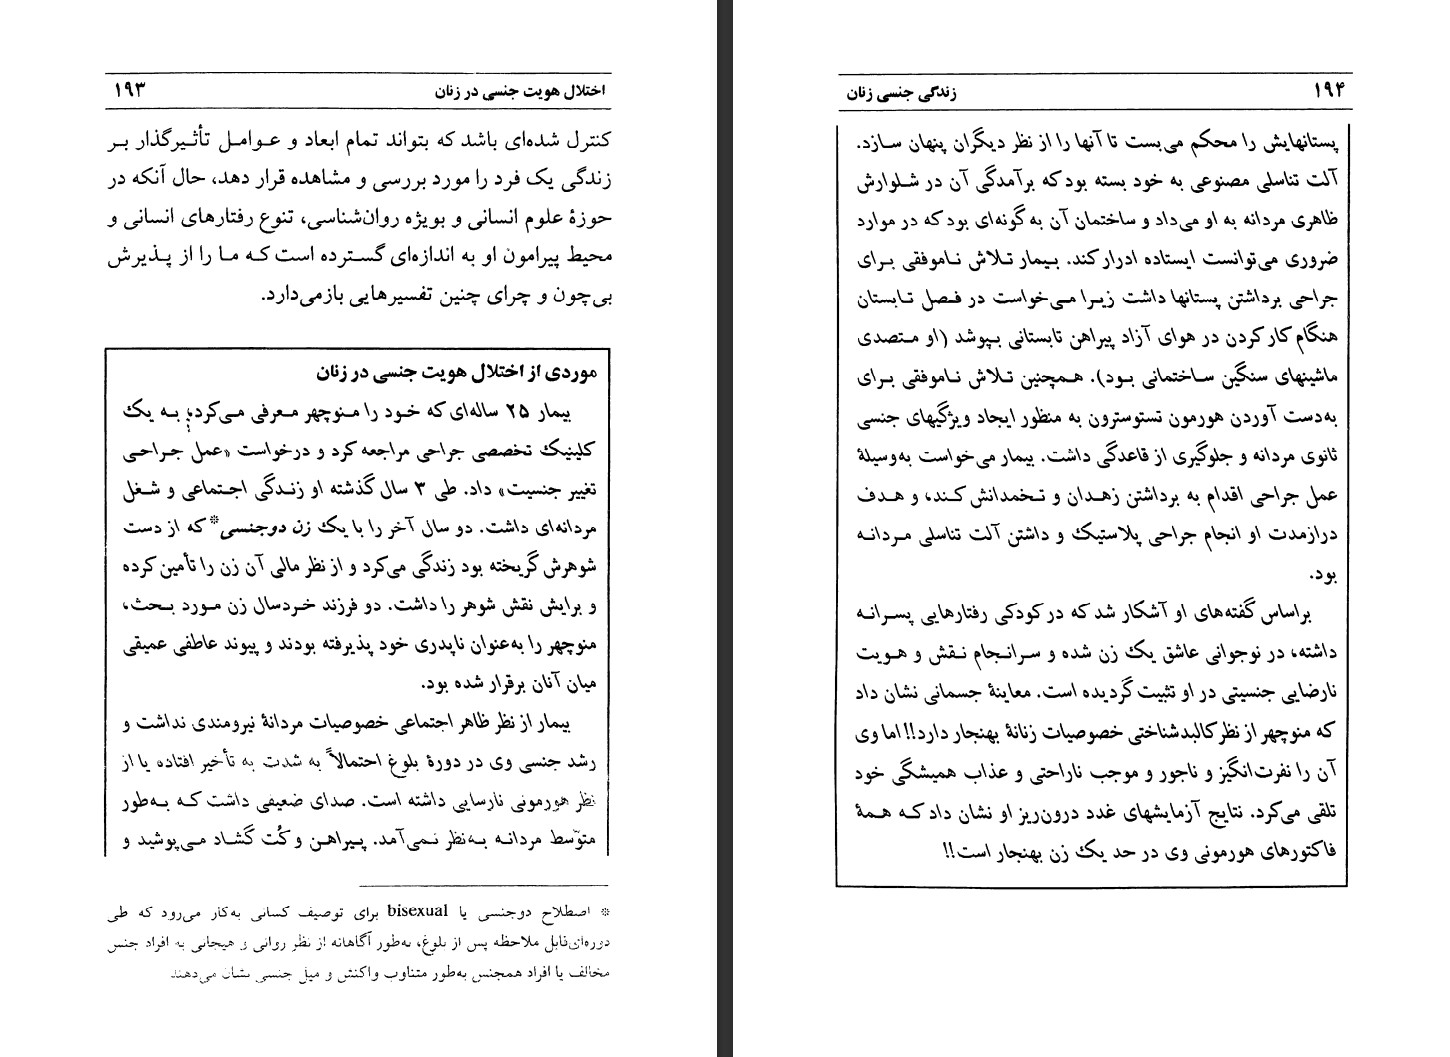 اختلال هویت جنسی در زنان ۱۹۳
کنترل شده‌ای باشد که بتواند تمام ابعاد و عوامل تأثیرگذار بر
زندگی یک فرد را مورد بررسی و مشاهده قرار دهد، حال آنکه در
حوزهٔ علوم انسانی و بویژه روان‌شناسی، تنوع رفتارهای انسانی و
محیط پیرامون او به اندازه‌ای گسترده است که ما را از پذیرش
بی‌چون و چرای چنین تفسیرهایی بازمی‌دارد.
موردی از اختلال هویت جنسی در زنان
بیمار ۲۵ ساله‌ای که خود را منوچهر معرفی می‌کرد؛ به یک
کلینیک تخصصی جراحی مراجعه کرد و درخواست «عمل جراحی
تغییر جنسیت» داد. طی ۳ سال گذشته او زندگی اجتماعی و شغل
مردانه‌ای داشت. دو سال آخر را با یک زن دوجنسی* که از دست
شوهرش گریخته بود زندگی می‌کرد و از نظر مالی آن زن را تأمین کرده
و برایش نقش شوهر را داشت. دو فرزند خردسال زن مورد بحث،
منوچهر را به‌عنوان ناپدری خود پذیرفته بودند و پیوند عاطفی عمیقی
میان آنان برقرار شده بود.
بیمار از نظر ظاهر اجتماعی خصوصیات مردانهٔ نیرومندی نداشت و
رشد جنسی وی در دورهٔ بلوغ احتمالاً به شدت به تأخیر افتاده یا از
نظر هورمونی نارسایی داشته است. صدای ضعیفی داشت که به‌طور
متوّسط مردانه به‌نظر نمی‌آمد. پیراهن و کُت گشاد می‌پوشید و
* اصطلاح دوجنسی یا bisexual برای توصیف کسانی به‌کار می‌رود که طی
دوره‌ای قابل ملاحظه پس از بلوغ، به‌طور آگاهانه از نظر روانی و هیجانی به افراد جنس
مخالف یا افراد همجنس به‌طور متناوب واکنش و میل جنسی نشان می‌دهند.
۱۹۴ زندگی جنسی زنان
پستانهایش را محکم می‌بست تا آنها را از نظر دیگران پنهان سازد.
آلت تناسلی مصنوعی به خود بسته بود که برآمدگی آن در شلوارش
ظاهری مردانه به او می‌داد و ساختمان آن به گونه‌ای بود که در موارد
ضروری می‌توانست ایستاده ادرار کند. بیمار تلاش ناموفقی برای
جراحی برداشتن پستانها داشت زیرا می‌خواست در فصل تابستان
هنگام کار کردن در هوای آزاد پیراهن تابستانی بپوشد (او متصدی
ماشینهای سنگین ساختمانی بود). همچنین تلاش ناموفقی برای
به‌دست آوردن هورمون تستوسترون به منظور ایجاد ویژگیهای جنسی
ثانوی مردانه و جلوگیری از قاعدگی داشت. بیمار می‌خواست به‌وسیلهٔ
عمل جراحی اقدام به برداشتن زهدان و تخمدانش کند، و هدف
درازمدت او انجام جراحی پلاستیک و داشتن آلت تناسلی مردانه
بود.
براساس گفته‌های او آشکار شد که در کودکی رفتارهایی پسرانه
داشته، در نوجوانی عاشق یک زن شده و سرانجام نقش و هویت
نارضایی جنسیتی در او تثبیت گردیده است. معاینهٔ جسمانی نشان داد
که منوچهر از نظر کالبدشناختی خصوصیات زنانهٔ بهنجار دارد!! اما وی
آن را نفرت‌انگیز و ناجور و موجب ناراحتی و عذاب همیشگی خود
تلقی می‌کرد. نتایج آزمایشهای غدد درون‌ریز او نشان داد که همهٔ
فاکتورهای هورمونی وی در حد یک زن بهنجار است!!